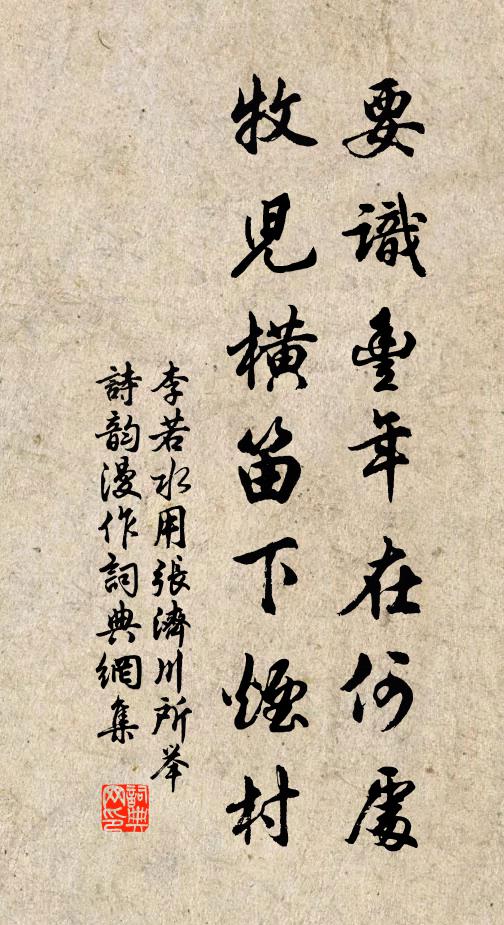 要識豐年在何處
牧児橫笛下煙村
李若水用張濟川所举
詩韵漫作詞典網集
詞典网印